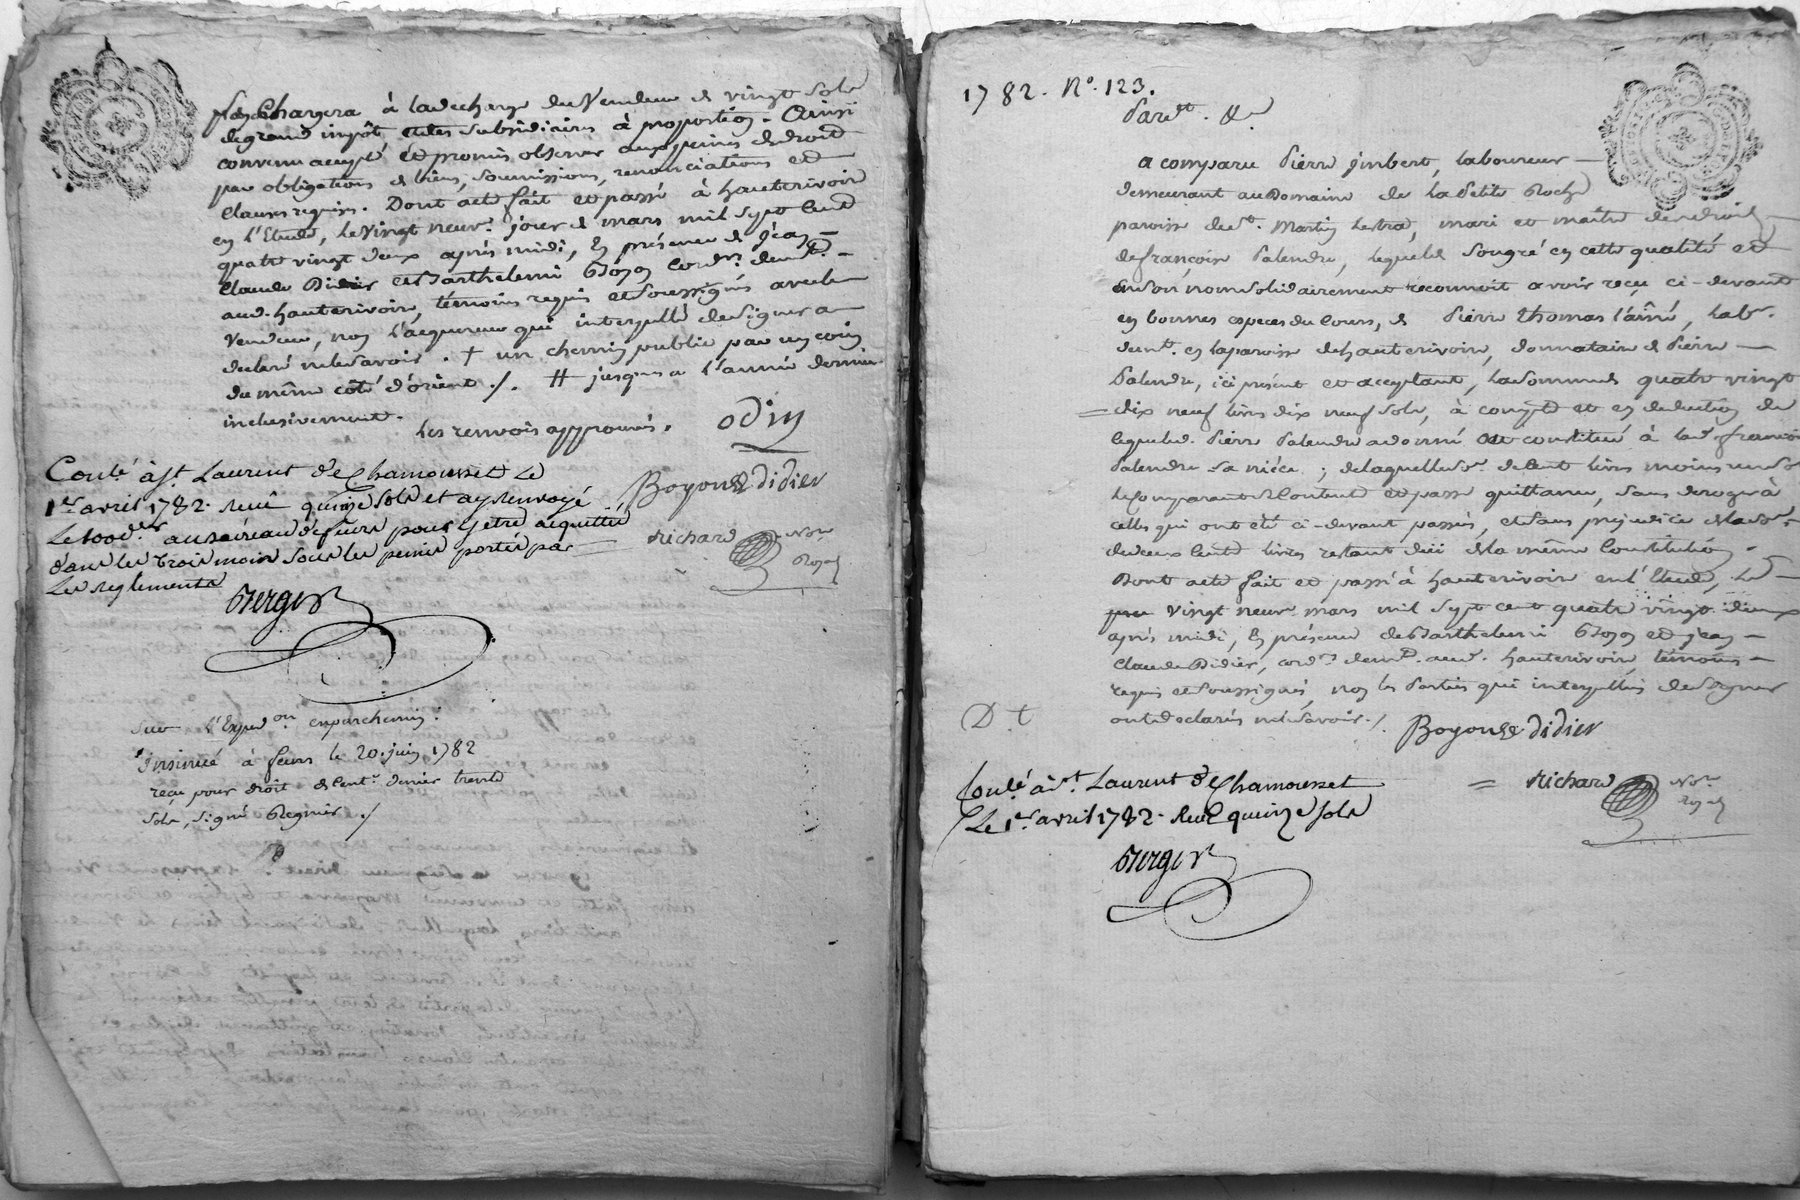 se Chargera à la decharge du Vendeur de vingt sols
de grand impôt et des subsidiaires à proportion. Ainsi
convenu accepté et promis observer aux peines de droit
par obligations de biens, soumissions, renonciations et
Clauses requises. Dont acte fait et passé à hauterivoir
en l'Etude, le vingt neuf. jour de mars mil sept Cent
quatre vingt deux après midi, En présence de jean
Claude Didier et Barthelemi Boyon Cordrs. demt.
aud. hauterivoir, témoins requis et soussignés avec le
Vendeur, non l'acquereur qui interpellé de signer a
declaré ne le savoir. + un chemin public par un coin
du même côté d'orient ./. # jusques a l'année derniere
inclusivement.
les renvois approuvés. odin
Boyon didier
richard Nore
Royal
Conlé. à St. Laurent de Chamousset Le
1er avril 1782. Reçu quinze sols et ay renvoyé
Le 100e. au bureau de feurs pour y etre acquitté
dans les trois mois sous les peines portées par
Les reglements
Berger
Sur l'Expedon en parchemin:
Insinué à feurs le 20. juin 1782
reçu pour droit de Centme. denier trente
sols, signé Regnier ./
1782. N°. 123.
Pardt. &c
a comparu Pierre jmbert, laboureur
demeurant au Domaine de la Petite Roche
paroisse de St. Martin Lestra, mari et maître des droits
de françoise Palendre, lequel de son gré en cette qualité et
en son nom solidairement reconnoit avoir reçu ci-devant
en bonnes especes du Cours, de Pierre thomas l'aîné, labr.
demt. en la paroisse de hauterivoir, donnataire de Pierre
Palendre, ici présent et acceptant, la somme de quatre vingt
dix neuf livres dix neuf sols, à compte et en deduction de
lequel d. Pierre Palendre a donné et constitué à lad. françoise
Palendre sa niéce; de laquelle se. de Cent livres moins un sol
le comparant se Contente et passe quittance, sans deroger à
celles qui ont eté ci-devant passées, et sans prejudice de la se.
de deux Cents livres restant düe de la même Constitution.
Dont acte fait et passé à hauterivoir en l'Etude, le
vingt neuf mars mil sept cent quatre vingt deux
après midi, En présence de Barthelemi Boyon et jean
Claude Didier, cordrs. demt. aud. hauterivoir, témoins
requis et soussignés, non les Parties qui interpellées de signer
ont declarés ne le savoir ./.
D t
Boyon didier
richard Nore
Royal
Conlé. à St. Laurent de Chamousset
Le 1er avril 1782. Reçu quinze sols
Berger